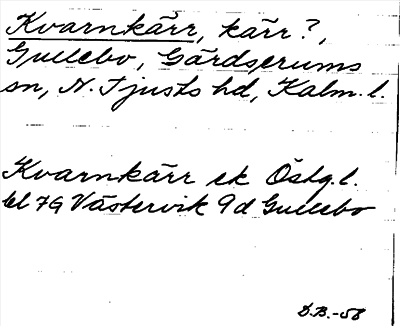 Kvarnkärr, kärr?,
Gullebo, Gärdserums
sn, N. Tjusts hd, Kalm. l.
Kvarnkärr ek Östg. l.
bl 79 Västervik 9d Gullebo
D.B.-58